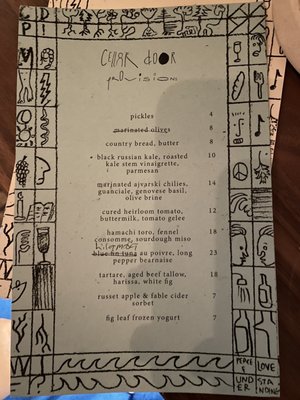 CELLAR DOOR
provisions
pickles 4
marinated olives 8
country bread, butter 8
black russian kale, roasted 10
kale stem vinaigrette,
parmesan
marinated ajvarski chilies, 14
guanciale, genovese basil,
olive brine
cured heirloom tomato, 12
buttermilk, tomato gelee
hamachi toro, fennel 18
consomme, sourdough miso
blue fin tuna au poivre, long 23
pepper bearnaise
tartare, aged beef tallow, 18
harissa, white fig
russet apple & fable cider 7
sorbet
fig leaf frozen yogurt 7
PEACE LOVE
UNDER STANDING